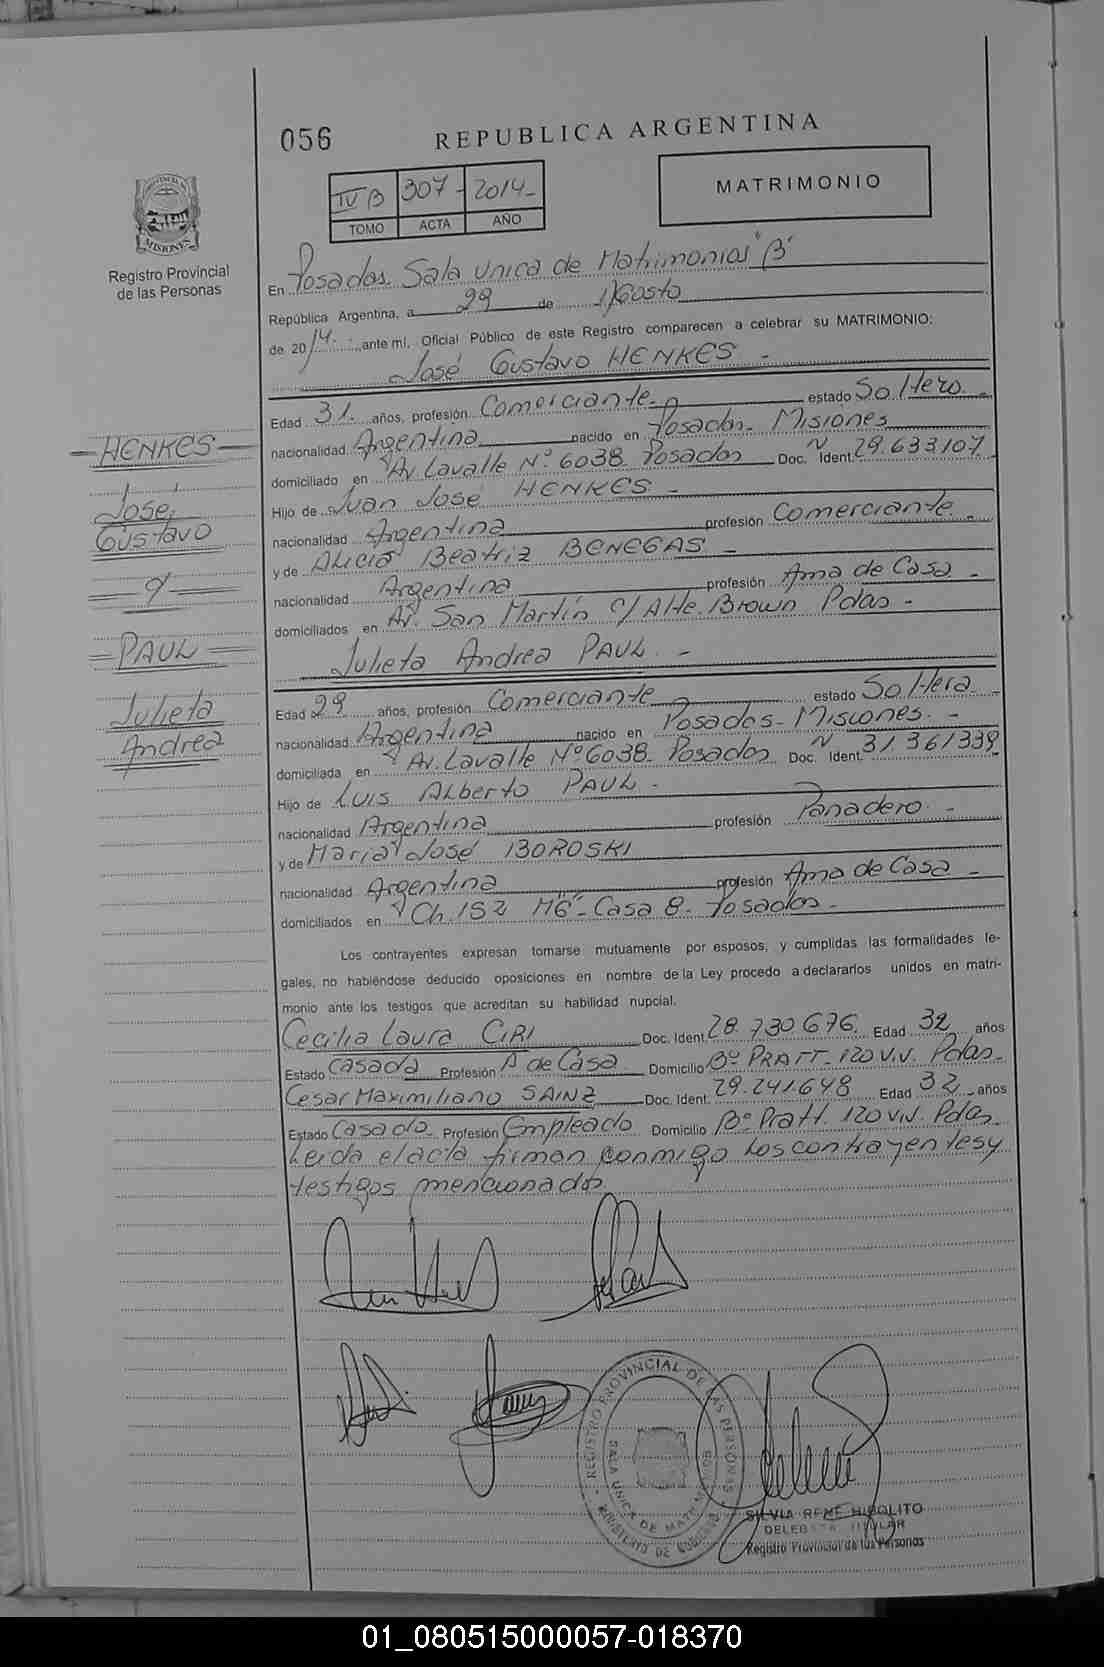 056
REPUBLICA ARGENTINA
MATRIMONIO
IV B 307- 2014-
TOMO ACTA AÑO
PROVINCIA DE MISIONES
Registro Provincial
de las Personas
En Posadas. Sala Unica de Matrimonios "B"
República Argentina, a 29 de Agosto
de 2014.- ,ante mí, Oficial Público de este Registro comparecen a celebrar su MATRIMONIO:
José Gustavo HENKES -
Edad 31. años, profesión Comerciante.- estado Soltero -
nacionalidad Argentina nacido en Posadas- Misiones
domiciliado en Av. Lavalle Nº 6038. Posadas Doc. Ident. Nº 29.633.107
Hijo de Juan José HENKES -
nacionalidad Argentina profesión Comerciante. -
y de Alicia Beatriz BENEGAS -
nacionalidad Argentina profesión Ama de Casa -
domiciliados en Av. San Martín c/ Alte. Brown Pdas -
Julieta Andrea PAUL. -
Edad 29 años, profesión Comerciante estado Soltera
nacionalidad Argentina nacido en Posadas- Misiones. -
domiciliada en Av. Lavalle Nº 6038- Posadas Doc. Ident. Nº 31.361339
Hijo de Luis Alberto PAUL -
nacionalidad Argentina profesión Panadero. -
y de Maria José BOROSKI
nacionalidad Argentina profesión Ama de Casa -
domiciliados en Ch. 152 M6- Casa 8. Posadas -
Los contrayentes expresan tomarse mutuamente por esposos, y cumplidas las formalidades le-
gales, no habiéndose deducido oposiciones en nombre de la Ley procedo a declararlos unidos en matri-
monio ante los testigos que acreditan su habilidad nupcial.
Cecilia Laura CIRI Doc. Ident. 28.730676. Edad 32 años
Estado casada Profesión A de Casa Domicilio Bº PRATT- 120 V.V. Pdas-
Cesar Maximiliano SAINZ Doc. Ident. 29.241.648 Edad 32 años
Estado Casado. Profesión Empleado Domicilio Bº Pratt. 120 V.V. Pdas-
Leida el acta firman conmigo los contrayentes y
testigos mencionados
HENKES
José
Gustavo
y
PAUL
Julieta
Andrea
REGISTRO PROVINCIAL DE LAS PERSONAS
SALA UNICA DE MATRIMONIOS
MINISTERIO DE GOBIERNO
SILVIA RENE HIPOLITO
DELEGADA TITULAR
Registro Provincial de las Personas
01_080515000057-018370